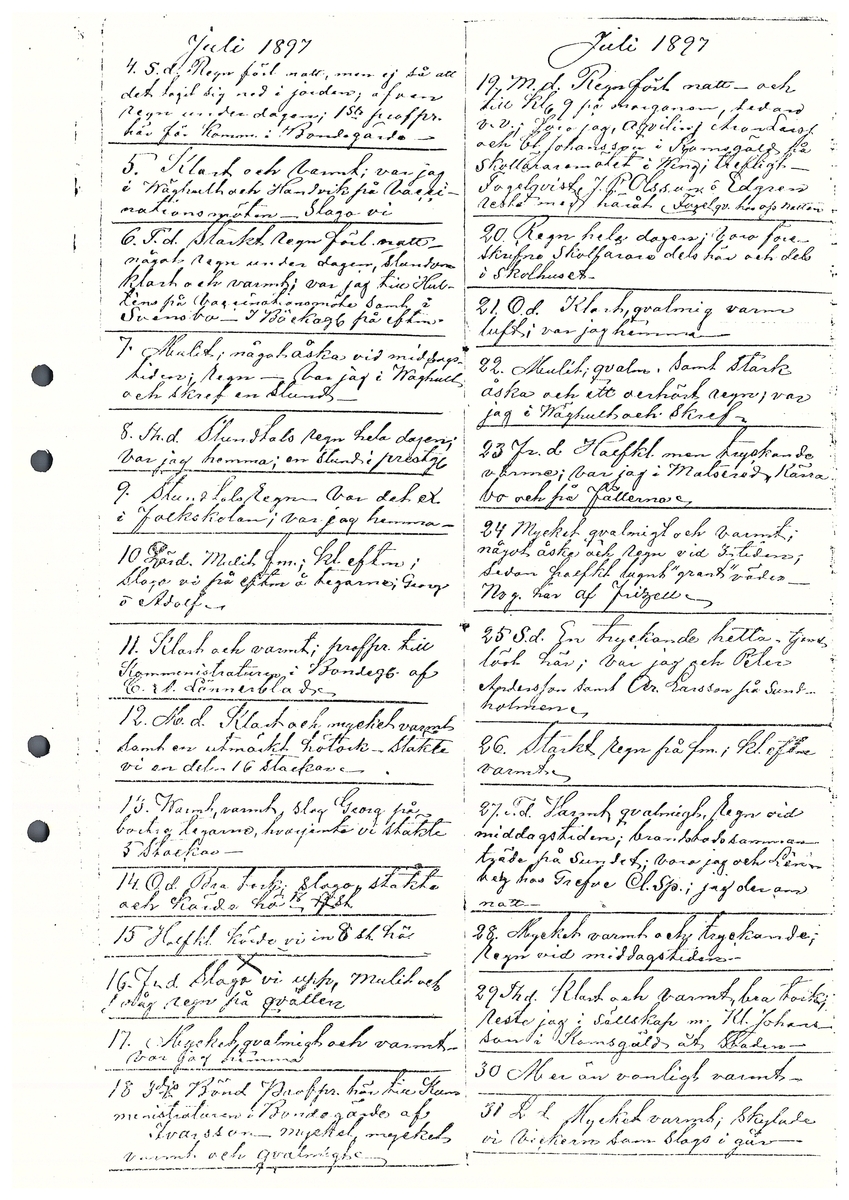 Juli 1897
4. S.d. Regn förl. natt, men ej så att
det tagit sig ned i jorden; afven
regn under dagen; 1sta profpr.
här för Komm. i Bondegärde
5. Klart och varmt; var jag
i Wåghult och Handvik på Vacci-
nationsmöten – Slogo vi
6. T.d. Starkt regn förl. natt –
något regn under dagen, stundom
klart och varmt; var jag till
på Vaccinationsmöte samt i
Svensbo – I på eftm.
7. Mulit; något åska vid middags-
tiden; regn – var jag i Wåghult
och skref en stund –
8. Th.d. Stundtals regn hela dagen;
var jag hemma; en stund i prestg.
9. Stundtals regn – var det ex
i Folkskolan; var jag hemma –
10 Lörd. Mulit fm.; kl. eftm;
slogo vi på eftm å tegarne; Georg
o Adolf
11. Klart och varmt; profpr. till
Kommenistraturen i Bondegb. af
Lönnerblad
12. M.d. Klart och mycket varmt
samt en utmärkt hötork – stakte
vi en del 16 stackar
13. Varmt, varmt, slog Georg på
tegarne, hvarjemte vi stakte
5 stackar –
14. O.d. Bra tork; slogo, stakte
och körde hö st
15 Halfkl. körde vi in 8 st. hö
16. Fr.d. Slogo vi upp, mulit och
regn på qvällen
17. Mycket qvalmigt och varmt –
var jag hemma
18 Bönd Profpr. här till Kom
ministraturen i Bondegärde af
Ivarsson – mycket, mycket
varmt och qvalmigt
Juli 1897
19, M.d. Regn förl. natt – och
till kl. 9 på morganen, sedan
v.v.; foro jag, Aqvilin, Aron Larss.
och Johansson i Ramsgäld på
Skollararemötet i Wing; trefligt –
Fagelqvist, J. P. Olsson o Edgren
reste med håråt. Fagelqv. hos oss natten
20. Regn hela dagen; voro före-
skrefne Skollarare dels här och dels
i Skolhuset –
21. O.d. Klart, qvalmig varm
luft; var jag hemma –
22. Mulit, qvalm. samt stark
åska och ett oerhört regn; var
jag i Wåghult och skref
23 Fr.d Halfkl. men tryckande
värme; var jag i Matsered, Kärra
bo och på Fällorna
24 Mycket qvalmigt och varmt;
något åska och regn vid 3-tiden;
sedan halfkl. lugnt "grant" väder –
här af Frizell
25 S.d. En tryckande hetta –
här; var jag och Peter
Andersson samt Ar. Larsson på Sund-
holmen
26. Starkt regn på fm.; kl. eftm
varmt
27. T.d. Varmt, qvalmigt, regn vid
middagstiden; brandstodssamman
träde på Sundet; voro jag och
hos Grefve Cl. Sp.; jag der om
natt –
28. Mycket varmt och tryckande;
regn vid middagstiden –
29 Th.d. Klart och varmt, bra tork;
reste jag i sällskap m. Kl. Johans-
son i Ramsgäld åt Staden –
30 Mer än vanligt varmt –
31 L.d. Mycket varmt; skylade
vi vickern som slogs i går –